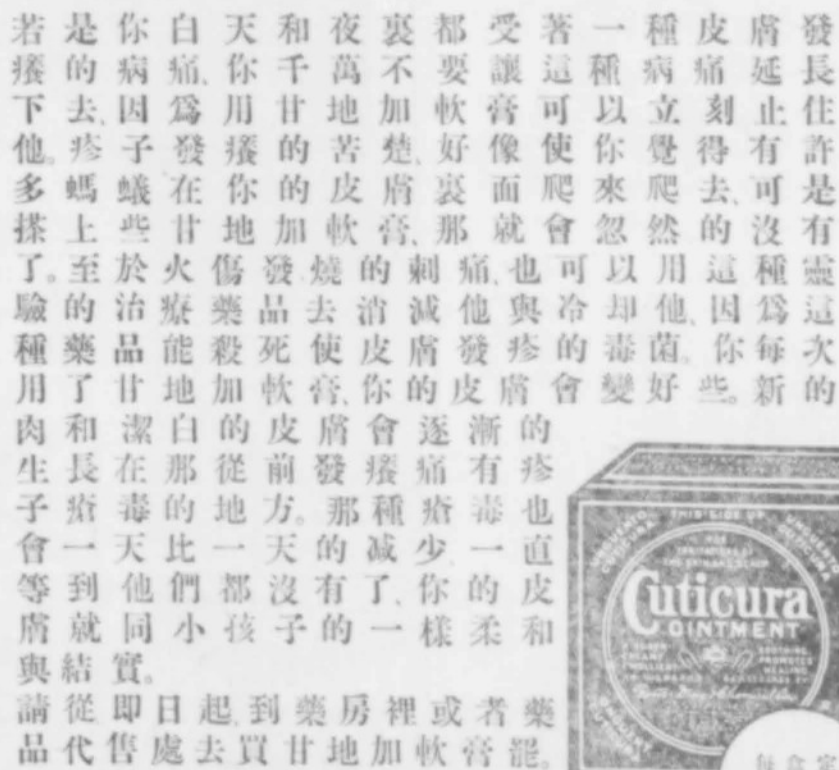 若是你白天和夜裏都受著一種皮膚發
癢的病痛、你千萬不要讓這種病痛延長
下去、因爲用甘地加軟膏可以立刻止住
他。疹子發癢的苦楚、好像使你覺得有許
多螞蟻在你的皮膚裏面爬來爬去、可是
搽上些甘地加軟膏、那就會忽然的沒有
了。至於火傷發燒的刺痛、也可以用這種靈
驗的治療藥品去消滅他與冷却他、因爲這
種藥品能殺死使皮膚發疹的毒菌。你每次
用了甘地加軟膏、你的皮膚會變好些。新的
肉和潔白的皮膚會逐漸的
生長在那從前發癢痛有疹
子瘡毒的地方。那種瘡毒也
會一天比一天的减少、一直
等到他們都沒有了、你的皮
膚就同小孩子的一樣柔和
與結實。
請從即日起、到藥房裡或者藥
品代售處去買甘地加軟膏罷。
THIS SIDE UP
Cuticura
OINTMENT
每盒